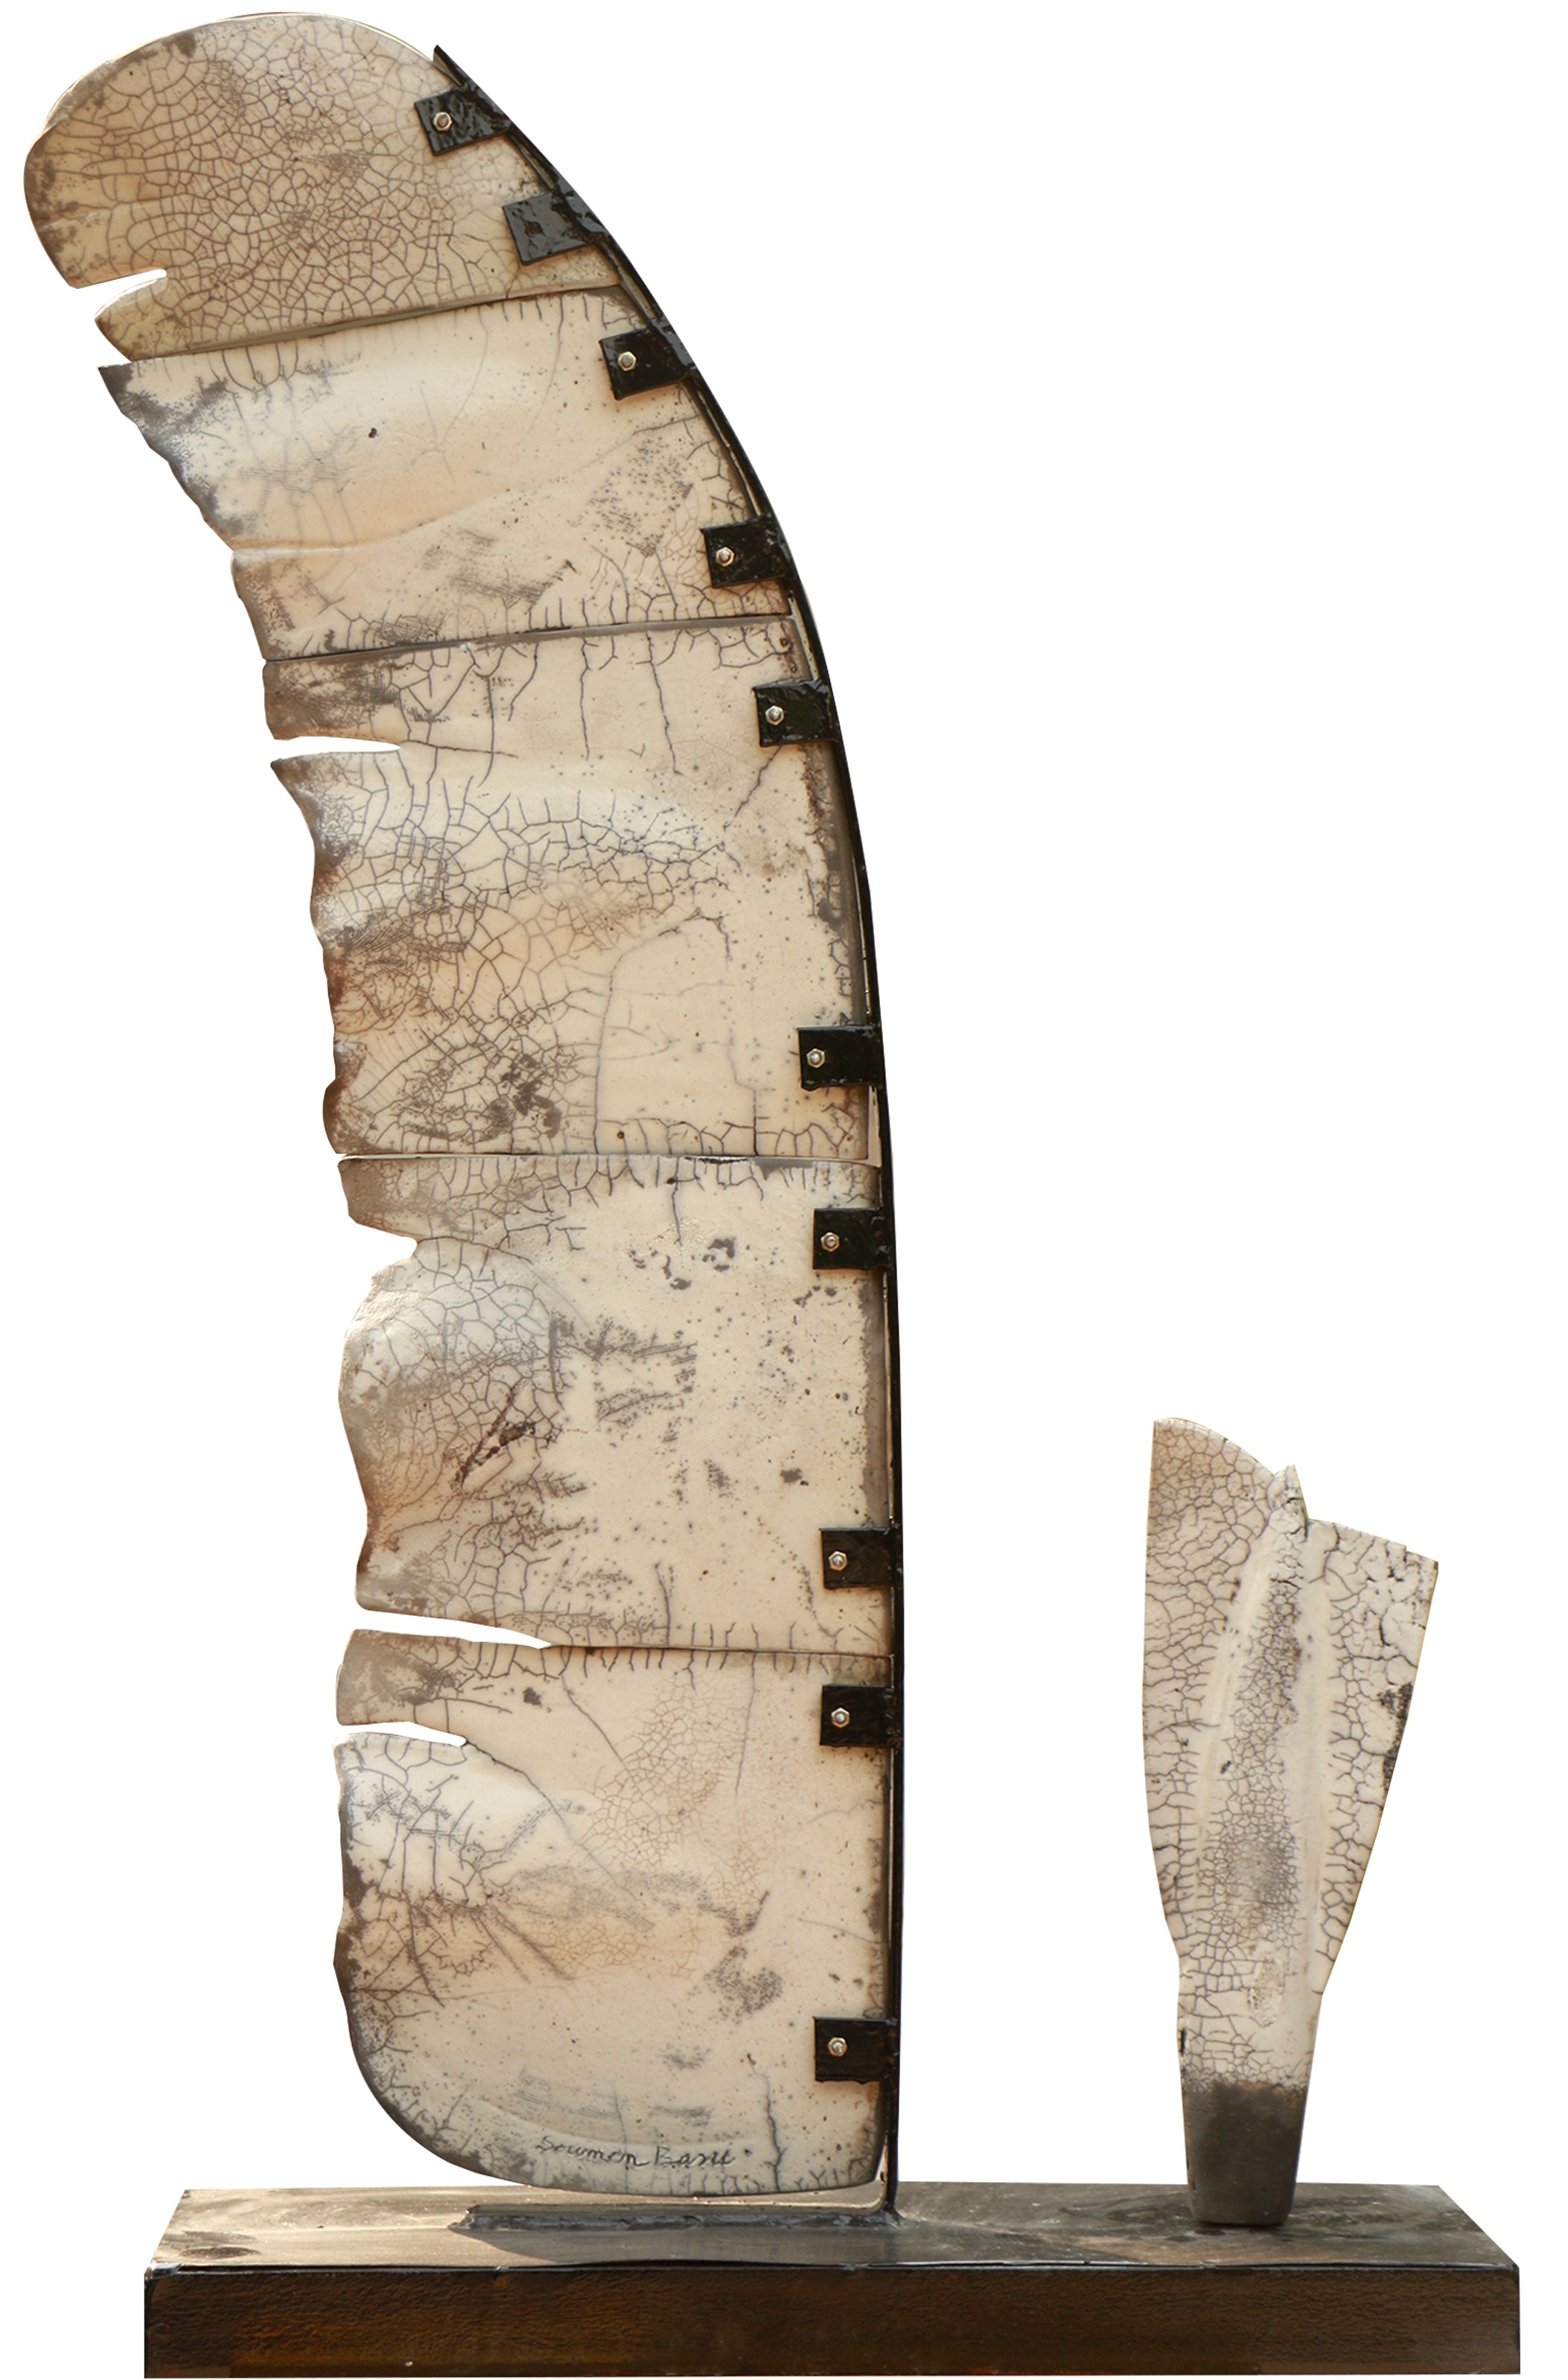 Soumen Basu